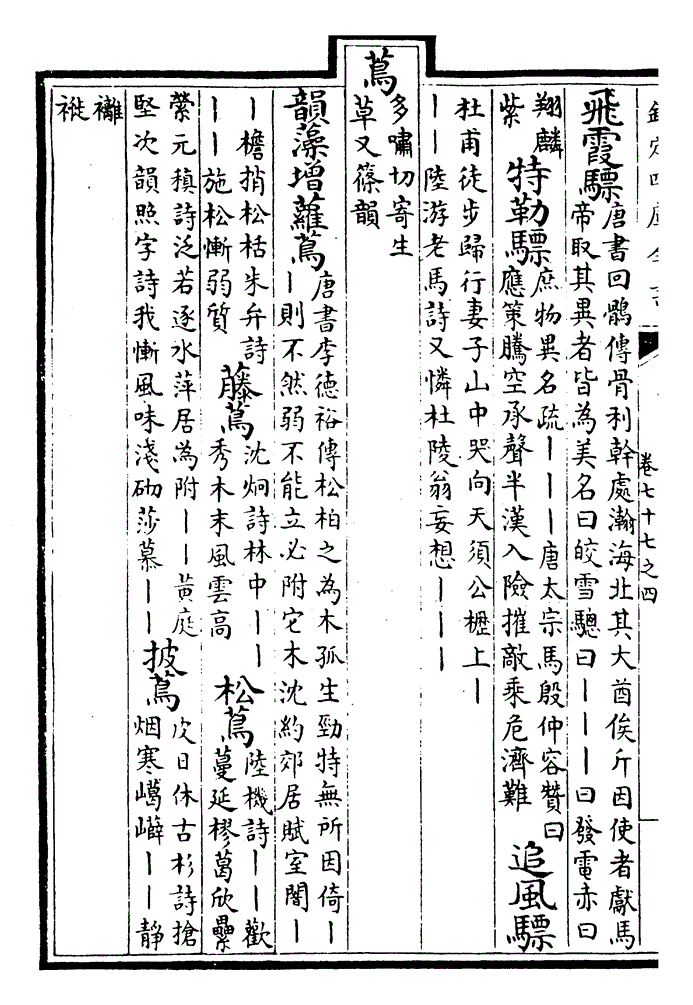 欽定四庫全書
卷七十七之四
飛霞驃
唐書回鶻傳骨利幹處瀚海北其大酋俟斤因使者獻馬
帝取其異者皆為美名曰皎雪驄曰———曰發電赤曰
翔麟
紫
特勒驃
庶物異名疏———唐太宗馬殷仲容贊曰
應策騰空承聲半漢入險摧敵乘危濟難
追風驃
杜甫徒步歸行妻子山中哭向天須公櫪上—
——陸游老馬詩又憐杜陵翁妄想———
蔦
多嘯切寄生
草又篠韻
韻藻增蘿蔦
唐書李德裕傳松柏之為木孤生勁特無所因倚—
—則不然弱不能立必附它木沈約郊居賦室闇—
—檐捎松栝朱弁詩
——施松慚弱質
藤蔦
沈炯詩林中——
秀木末風雲高
松蔦
陸機詩——歡
蔓延樛葛欣纍
縈元稹詩泛若逐水萍居為附——黃庭
堅次韻照字詩我慚風味淺砌莎慕——
披蔦
皮日休古杉詩搶
烟寒嶱嶭——靜
襹
褷